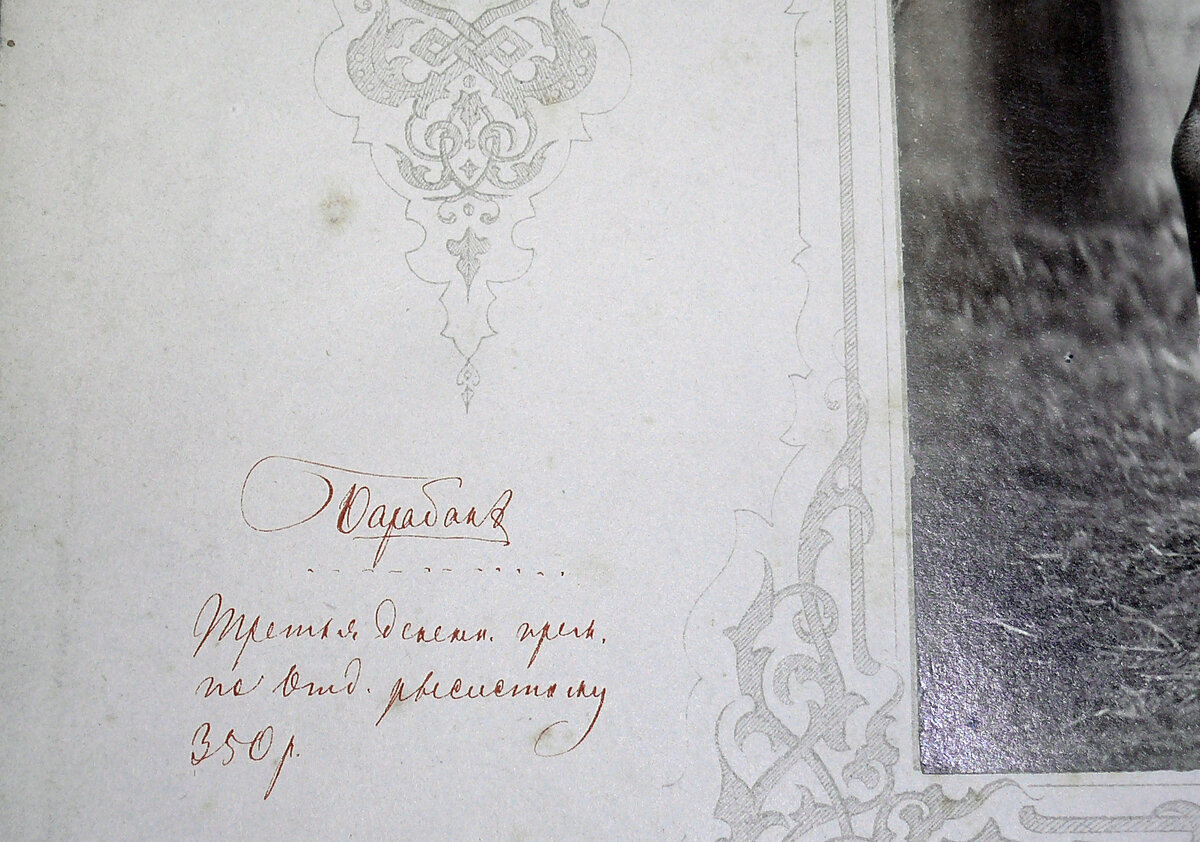 Барабанъ
Третья денежн. прем.
по Отд. рысистому
350 р.